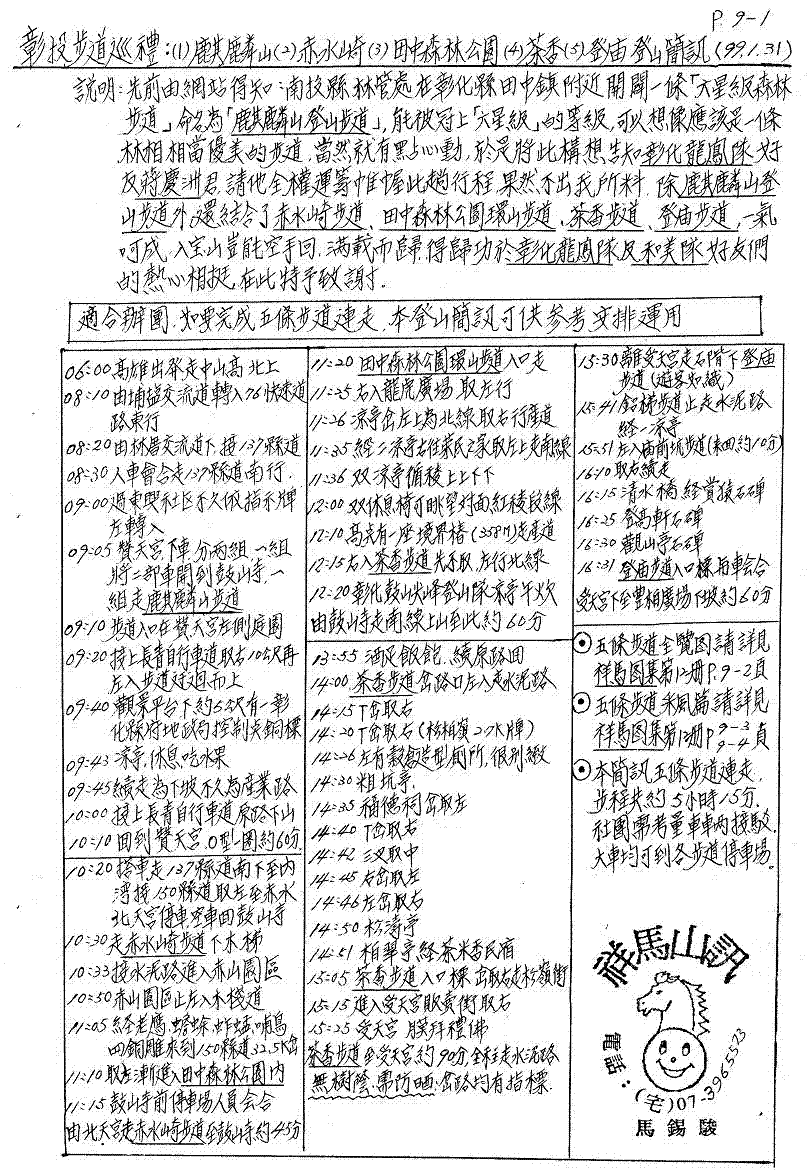 P. 9-1
彰投步道巡禮:(1)麒麟山(2)赤水崎(3)田中森林公園(4)茶香(5)登庙登山簡訊(99.1.31)
説明:先前由網站得知:南投縣林管處在彰化縣田中鎮附近開闢一條「六星級森林
步道」命名為「麒麟山登山步道」,能被冠上「六星級」的等級,可以想像應該是一條
林相相當優美的步道,當然就有點心動,於是將此構想告知彰化龍鳳隊好
友蔣慶洲君,請他全權運籌帷幄此趟行程,果然不出我所料,除麒麟山登
山步道外,還結合了赤水崎步道、田中森林公園環山步道、茶香步道、登庙步道,一氣
呵成,入宝山豈能空手回,滿載而歸,得歸功於彰化龍鳳隊及和美隊好友們
的熱心相挺,在此特予致謝!
適合辦團.如要完成五條步道連走,本登山簡訊可供參考安排運用
06:00高雄出發走中山高北上
08:10由埔塩交流道轉入76快速道
路東行
08:20由林厝交流道下,接137縣道
08:30人車會合走137縣道南行.
09:00過東興社区不久依指示牌
左轉入
09:05贊天宮下車,分兩組,一組
將二部車開到鼓山寺,一
組走麒麟山步道
09:10步道入口在贊天宮左側庭園
09:20接上長青自行車道取右10公尺再
左入步道迂迴而上
09:40觀景平台下約5公尺有一彰
化縣府地政局控制点銅標
09:43涼亭,休息吃水果
09:45續走為下坡不久為產業路
10:00接上長青自行車道原路下山
10:10回到贊天宮.O型一圈約60分
10:20搭車走137縣道南下至內
灣接150縣道取左至赤水
北天宮停車,空車回鼓山寺
10:30走赤水崎步道下木梯
10:33接水泥路進入赤山園區
10:50赤山園区止左入木棧道
11:05經老鷹,蟾蜍,蚱蜢,哺鳥
四銅雕來到150縣道32.5K岔
11:10取左漸進入田中森林公園內
11:15鼓山寺前停車場人員会合
由北天宮走赤水崎步道至鼓山寺約45分
11:20田中森林公園環山步道入口走
11:25右入龍虎廣場,取左行
11:26涼亭岔左上為北線取右行產道
11:35經二涼亭右往葉氏之家取左上走南線
11:36双涼亭循稜上上下下
12:00双休息椅可眺望对面紅稜段線
12:10高点有一座境界樁(358M)走產道
12:15右入茶香步道先不取,左行北線
12:20彰化鼓山尖峰登山隊涼亭午炊
由鼓山寺走南線上山至此約60分
13:55酒足飯飽.續原路回
14:00茶香步道岔路口左入走水泥路
14:15丁岔取右
14:20丁岔取右(松柏嶺2.7K牌)
14:26左有穀倉造型厕所,很別緻
14:30粗坑亭.
14:35福德祠岔取左
14:40丁岔取右
14:42三叉取中
14:45右岔取左
14:46左岔取右
14:50松濤亭
14:51柏翠亭經茶米香民宿
15:05茶香步道入口標岔取右走松嶺街
15:15進入受天宮販賣街取右
15:25受天宮膜拜禮佛
茶香步道至受天宮約90分,全程走水泥路
無樹蔭.需防晒,岔路均有指標.
15:30離受天宮走石階下登庙
步道(遊客如織)
15:41鋁梯步道止走水泥路
經二涼亭
15:51左入庙前坑步道(來回約10分)
16:10取右續走
16:15清水橋,經賞猿石碑
16:25登高軒石碑
16:30觀山亭石碑
16:31登庙步道入口標与車会合
受天宮下至豐柏廣場下坡約60分
⊙五條步道全覽图請詳見
祥馬图集第12册P.9-2頁
⊙五條步道采風篇請詳見
祥馬图集第12册P.9-3 9-4頁
⊙本簡訊五條步道連走,
步程共約5小時15分.
社團需考量車輛接駁.
大車均可到各步道停車場.
祥馬山訊
電話:(宅)07-3965523
馬錫駿